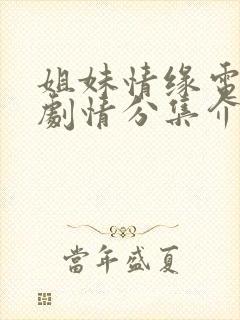 姐妹情缘电
剧情分集介
当年盛夏